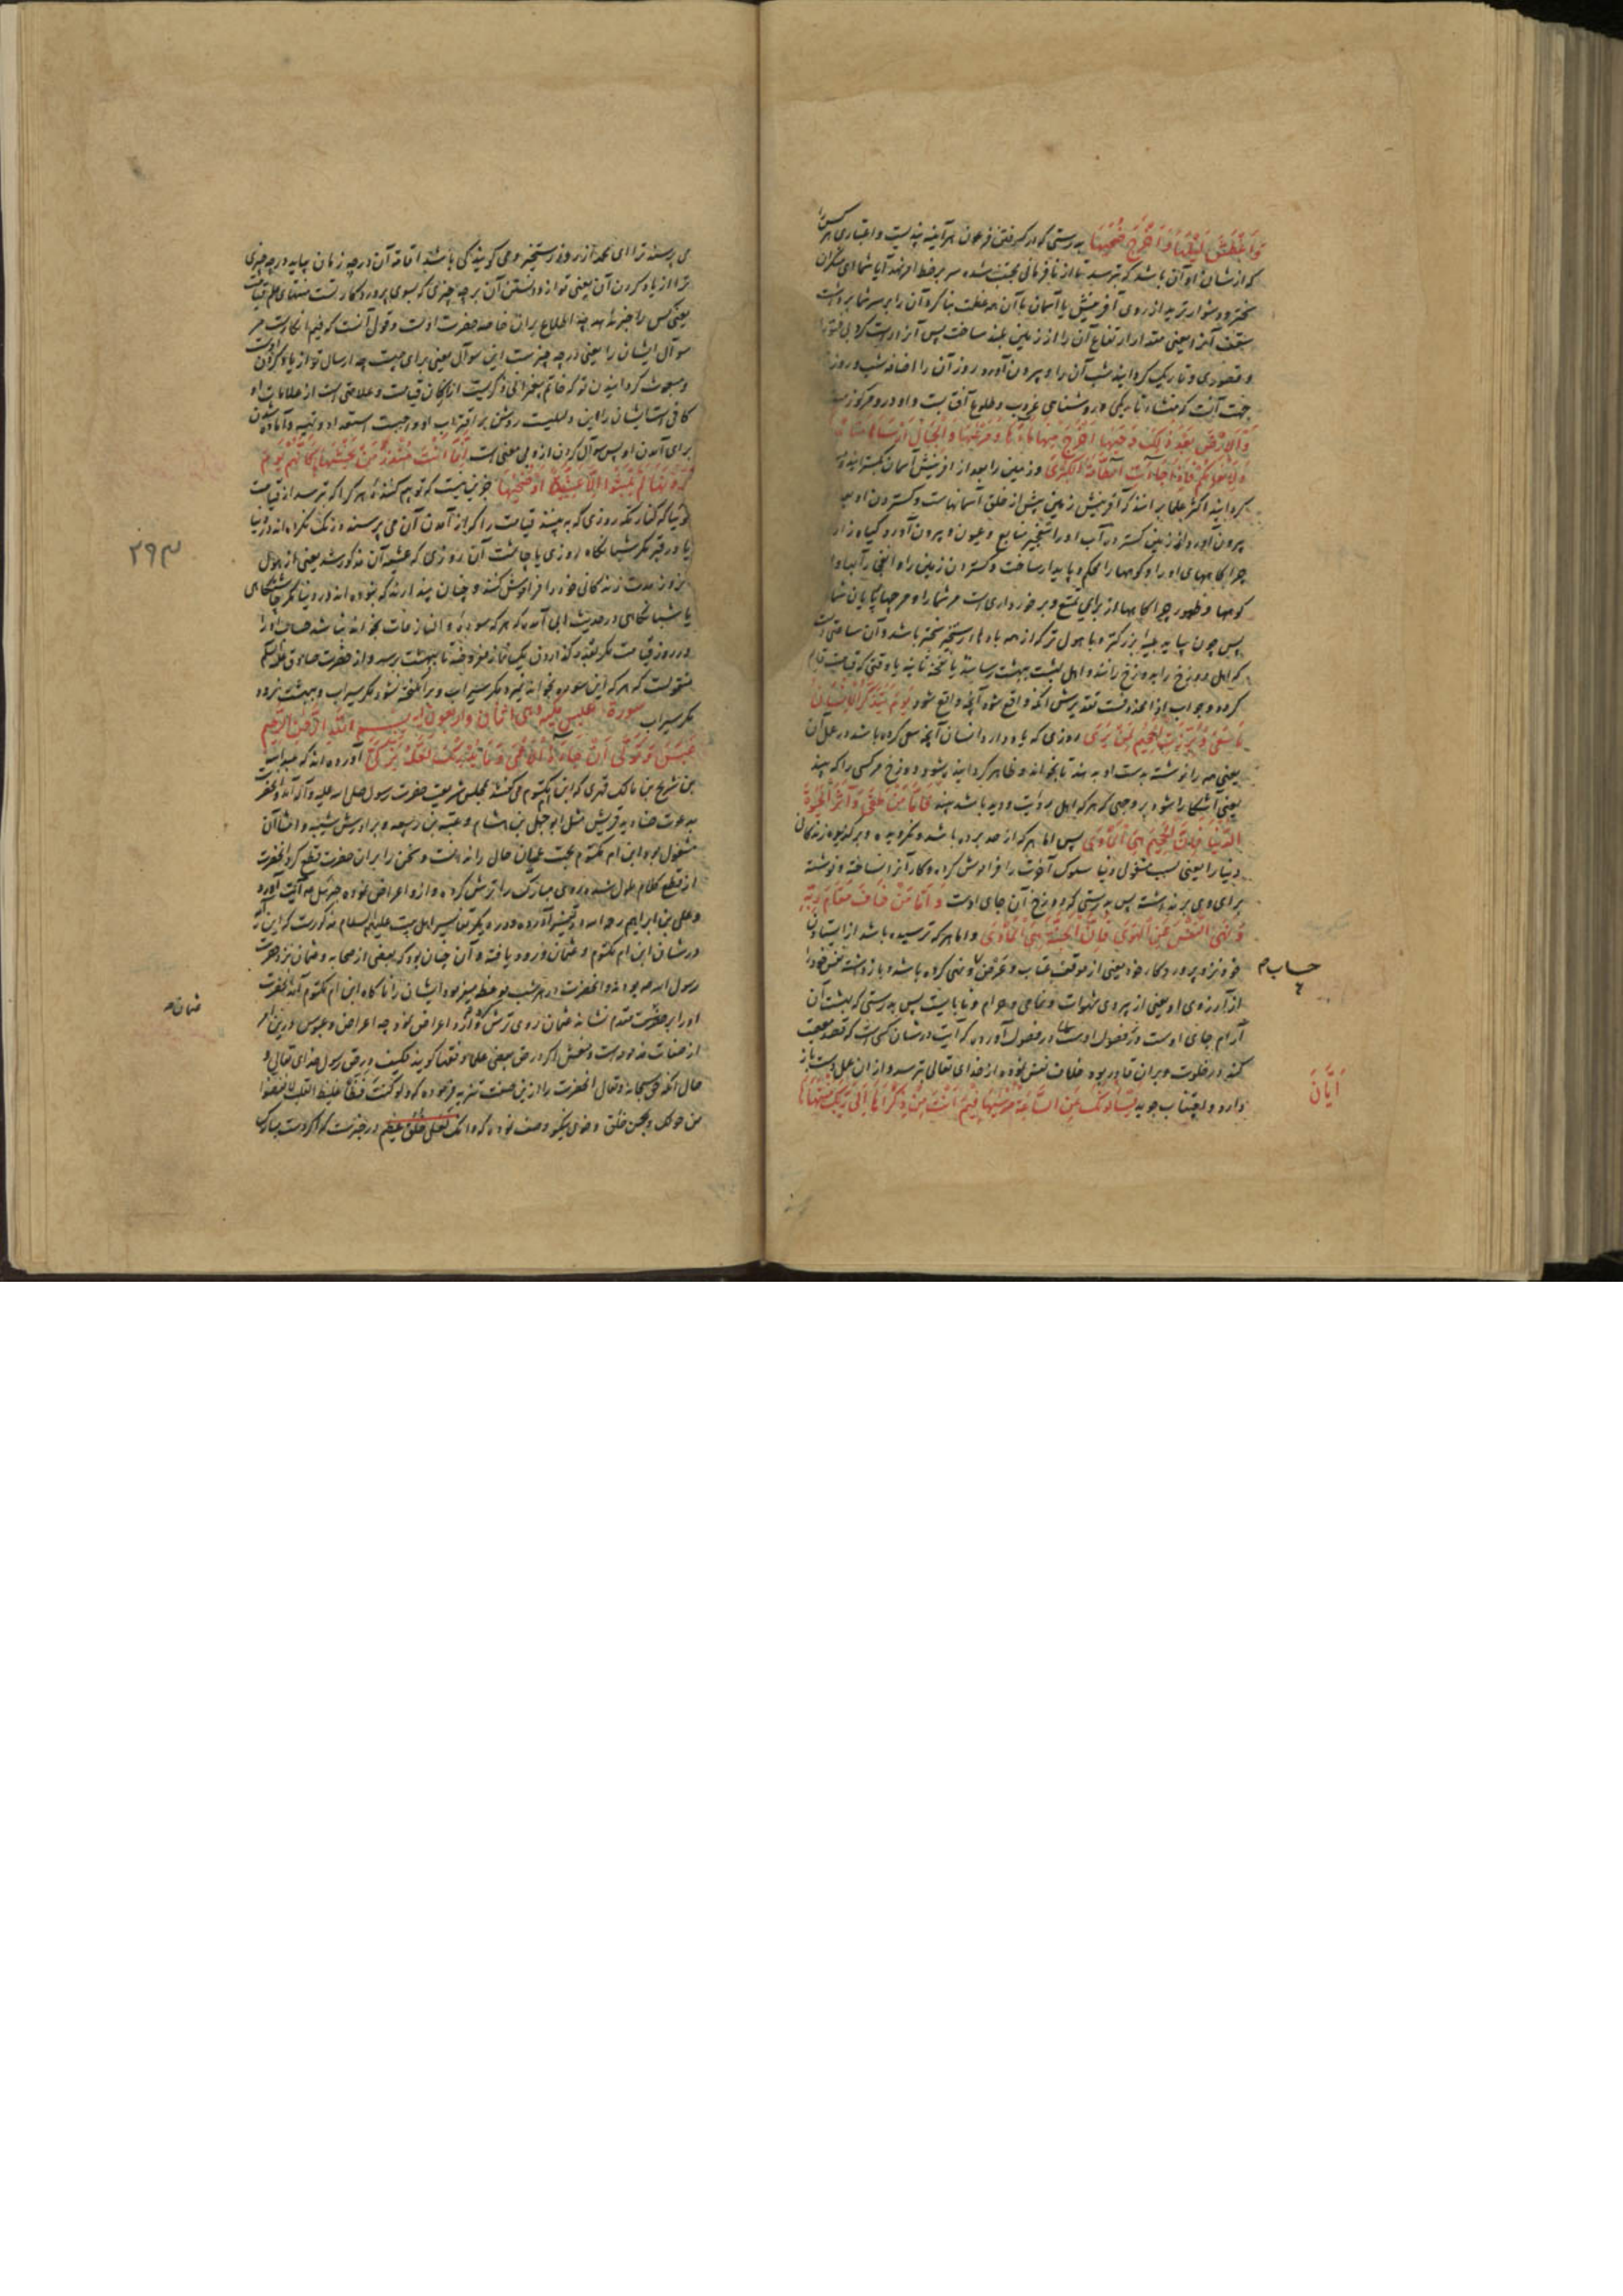 وَاَغْطَشَ لَیْلَهَا وَاَخْرَجَ ضُحٰیهَا بدرستی که در گرفتن فرعون هر آینه پندیست و اعتباری هر کس را
که از شان او آن باشد که بترسد یا از نافرمانی مجتنب شده سر بر خط امر نهد آیا شما ای منکران
سخت‌تر و دشوارترید از روی آفرینش یا آسمان با آن همه عظمت بنا کرد آن را بر سر شما برداشت
سقف آنرا یعنی مقدار ارتفاع آن را از زمین بلند ساخت پس آنرا درست کرد بی فتور
و قصوری و تاریک گردانید شب آن را و بیرون آورد روز آن را اضافه شب و روز
جهت آنست که منشاء تاریکی و روشنایی غروب و طلوع آفتابست و او در
وَالْاَرْضَ بَعْدَ ذٰلِکَ دَحٰیهَا اَخْرَجَ مِنْهَا مَاءَهَا وَمَرْعٰیهَا وَالْجِبَالَ اَرْسٰیهَا مَتَاعًا
وَلِاَنْعَامِکُمْ فَاِذَا جَاءَتِ الطَّامَّةُ الْکُبْرٰی و زمین را بعد از آفرینش آسمان بگسترانید
گردانید اکثر علما برانند که آفرینش زمین پیش از خلق آسمانهاست و گستردن او بعد
بیرون آورد از زمین گسترده آب او را بتفجیر منابع و عیون و بیرون آورد گیاه زار
چراگاههای او را و کوهها را محکم و پایدار ساخت و گستردن زمین را و
کوهها و ظهور چراگاهها از برای تمتع و برخورداریست مر شما را و مر چهارپایان شما
پس چون بیاید بلیه بزرگتر و با هول‌تر که از همه بادهاء رستخیز نفخه باشد و آن ساعتیست
که اهل دوزخ را بدوزخ رانند و اهل بهشت ببهشت رسانند یا نفخه ثانیه یا وقتی که قیامت قایم
گردد و جواب اذا محذوفست تقدیرش آنکه واقع شود آنچه واقع شود یَوْمَ یَتَذَکَّرُ الْاِنْسَانُ
مَا سَعٰی وَبُرِّزَتِ الْجَحِیمُ لِمَنْ یَرٰی روزی که یاد دارد انسان آنچه سعی کرده باشد در عمل آن
یعنی همه را نوشته بدست او بدهند تا بخواند و ظاهر گردانیده شود دوزخ هر کسی را که بیند
یعنی آشکارا شود بر وجهی که هر که اهل رؤیت و دید باشد بیند فَاَمَّا مَنْ طَغٰی وَآثَرَ الْحَیٰوةَ
الدُّنْیَا فَاِنَّ الْجَحِیمَ هِیَ الْمَأْوٰی پس اما هر که از حد برده باشد و نگرویده و برگزیده زندگانی
دنیا را یعنی بسبب مشغول دنیا سلوک آخرت را فراموش کرده و کار آنرا نساخته و توشه
برای وی برنداشته پس بدرستی که دوزخ آن جای اوست وَاَمَّا مَنْ خَافَ مَقَامَ رَبِّهِ
وَنَهَی النَّفْسَ عَنِ الْهَوٰی فَاِنَّ الْجَنَّةَ هِیَ الْمَأْوٰی و اما هر که ترسیده باشد از ایستادن
خود نزد پروردگار خود یعنی از موقف عتاب و عرض و نهی کرده باشد و باز داشته نفس خود را
حساب م
از آرزوی او یعنی از پیروی شهوات و مناهی و حرام و نابایست پس بدرستی که بهشت آن
آرام جای اوست و در فصول آورده که آیت در شان کسی است که قصد معصیت
کند در خلوت و بران قادر بود خلاف نفس نموده از خدای تعالی بترسد و از ان عمل دست باز
دارد و اجتناب جوید یَسْئَلُونَکَ عَنِ السَّاعَةِ مُرْسٰیهَا فِیمَ اَنْتَ مِنْ ذِکْرٰیهَا اِلٰی رَبِّکَ مُنْتَهٰیهَا
اَیَّانَ
می پرسند ترا ای محمد از روز رستخیز و می گویند کی باشد اقامة آن و در چه زمان بیاید در چه چیزی
ترا از یاد کردن آن یعنی تو از دانستن آن بر چه چیزی که بسوی پروردگار تست منتهای علم قیامت
یعنی کس را خبر ندهد چه اطلاع بران خاصه حضرت اوست و قول آنست که فیم انکار است مر
سوآل ایشان را یعنی در چه چیزست این سوآل یعنی برای چیست چه ارسال تو از یاد کردن اوست
و مبعوث گردانیدن تو که خاتم پیغمبرانی ذکریست از امکان قیامت و علامتی است از علامات او
کافیست ایشان را این دلیلیست روشن بر اقتراب او و جهت استعداد و تهیه و آماده شدن
برای آمدن او پس سوآل کردن از وی بی معنی است اِنَّمَا اَنْتَ مُنْذِرُ مَنْ یَخْشٰیهَا کَاَنَّهُمْ یَوْمَ
یَرَوْنَهَا لَمْ یَلْبَثُوا اِلَّا عَشِیَّةً اَوْ ضُحٰیهَا جز این نیست که تو بیم کننده هر کرا که ترسد از قیامت
گویا که کفار مکه روزی که به بینند قیامت را که از آمدن آن می پرسند درنگ نکرده‌اند در دنیا
یا در قبر مگر شبانگاه روزی یا چاشت آن روزی که عشیه آن مذکور شد یعنی از هول
۲۹۳
بروز مدت زندگانی خود را فراموش کنند و چنان پندارند که نبوده اند در دنیا مگر چاشتگاهی
یا شبانگاهی و در حدیث ابی آمده که هر که سوره و النازعات بخواند نباشد حساب او را
در روز قیامت مگر بقدر گذاردن یک نماز مفروضه تا ببهشت برسد و از حضرت صادق علیه السلم
منقولست که هر که این سوره بخواند نمیرد مگر سیراب و برانگیخته نشود مگر سیراب و ببهشت نرود
مگر سیراب سورة عبس مکیه وهی اثنان واربعون آیه بسم الله الرحمن الرحیم
عَبَسَ وَتَوَلّٰی اَنْ جَاءَهُ الْاَعْمٰی وَمَا یُدْرِیکَ لَعَلَّهُ یَزَّکّٰی آورده اند که عبدالله
بن شریح بن مالک فهری که ابن ام مکتوم می گفتند بمجلس شریف حضرت رسول صلی الله علیه و آله آمد و آنحضرت
بدعوت صنادید قریش مثل ابوجهل بن هشام و عتبه بن ربیعه و برادرش شیبه و امثال آن
مشغول بود ابن ام مکتوم بجهت عمیان حال را ندانست و سخن را بران حضرت قطع کرد آنحضرت
از قطع کلام ملول شده روی مبارک را ترش کرده و ازو اعراض نموده جبرئیل این آیت آورد
و علی بن ابراهیم رحمه الله در تفسیر آورده و در دیگر تفاسیر اهل بیت علیهم السلام مذکورست که این آیه
در شان ابن ام مکتوم و عثمان فرود یافته و آن چنان بود که بعضی از صحابه و عثمان نزد حضرت
رسول الله بودند و آنحضرت ایشان را ناگاه ابن ام مکتوم آمد آنحضرت
عثمان م
او را بر عثمان مقدم نشانده عثمان روی ترش کرد و ازو اعراض نمود چه اعراض و عبوس درین امر
از صفات مذمومه است و بعضی علما و فقها گویند فکیف در حق رسول خدای تعالی و
حال آنکه حق سبحانه و تعالی آنحضرت را ازین صفت تنزیه فرموده که و لو کنت فظا غلیظ القلب لانفضوا
من حولک و بحسن خلق و خوی نیکو وصف نموده که و انک لعلی خلق عظیم در خبرست که اگر دست مبارک